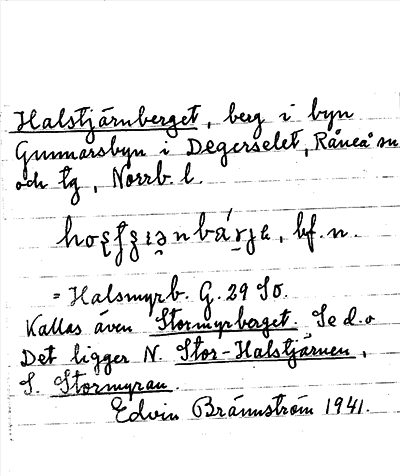 Halstjärnberget, berg i byn
Gunnarsbyn i Degerselet, Råneå sn
och tg, Norrb. l.
bf. n.
= Halsmyrb. G. 29 SO.
Kallas även Stormyrberget. Se d. o
Det ligger N. Stor-Halstjärnen,
S. Stormyran.
Edvin Brännström 1941.